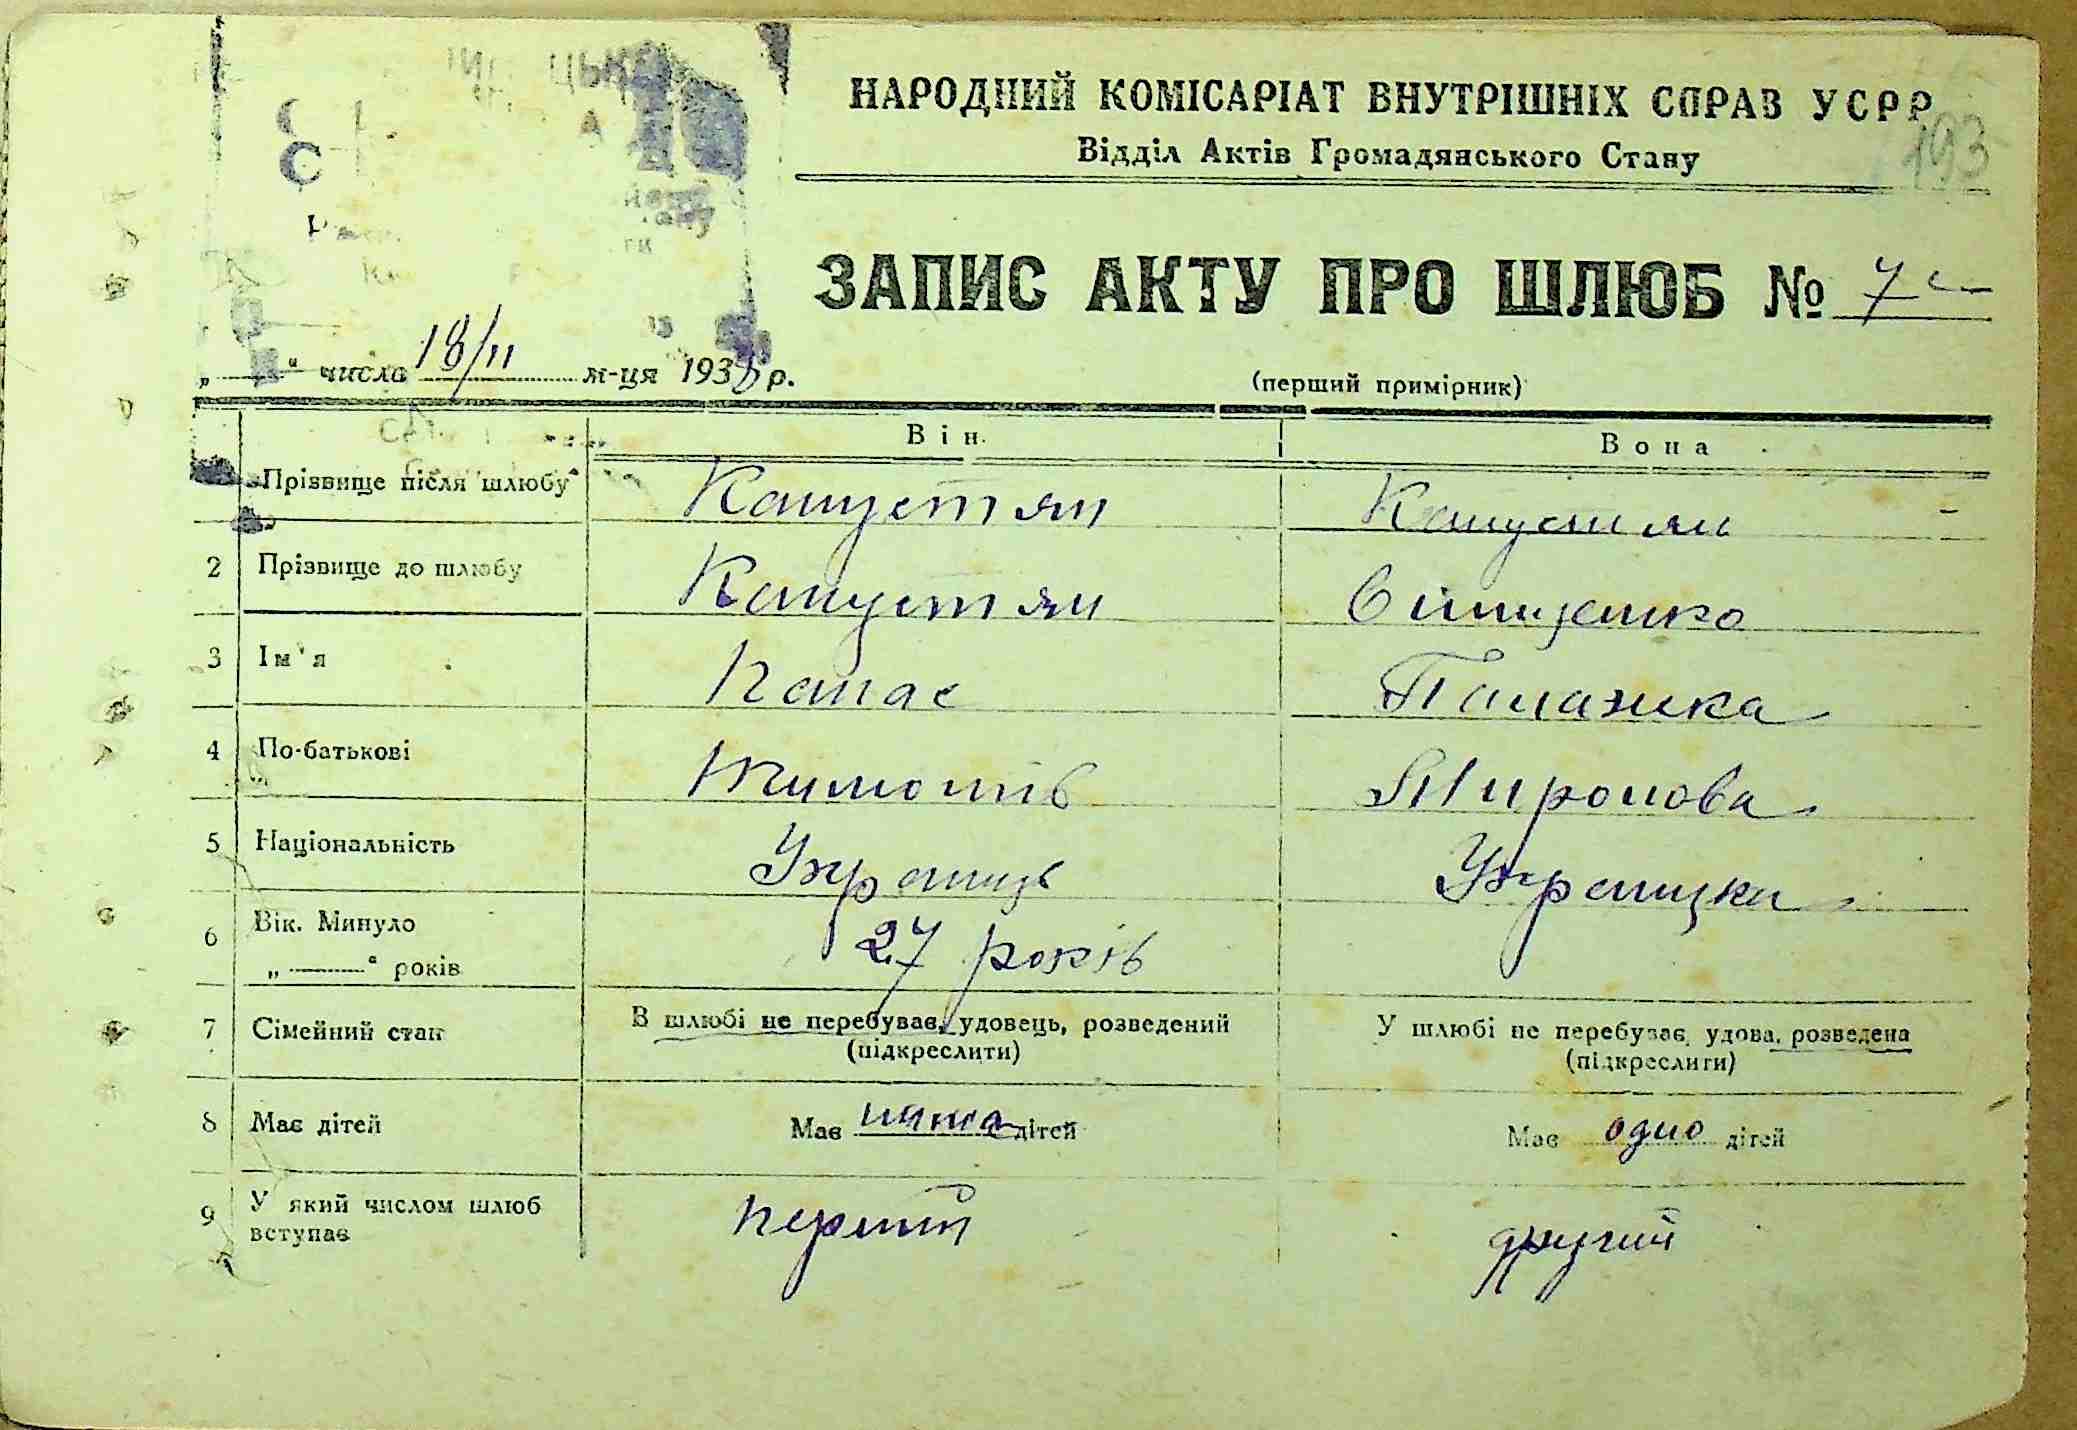 НАРОДНИЙ КОМІСАРІАТ ВНУТРІШНІХ СПРАВ УСРР
Відділ Актів Громадянського Стану
193
ЗАПИС АКТУ ПРО ШЛЮБ № 7
„ “ числа 18/II м-ця 1938 р.
(перший примірник)
Він
Вона
Прізвище після шлюбу
Капустян
Капустян
2 Прізвище до шлюбу
Капустян
3 Ім'я
Панас
Палажка
4 По-батькові
Тимотів
Миронова
5 Національність
Українць
Українка
6 Вік. Минуло
„ “ років
27 років
7 Сімейний стан
В шлюбі не перебував, удовець, розведений
(підкреслити)
У шлюбі не перебуває, удова, розведена
(підкреслити)
8 Має дітей
Має дітей
Має одно дітей
9 У який числом шлюб
вступає
перший
другий